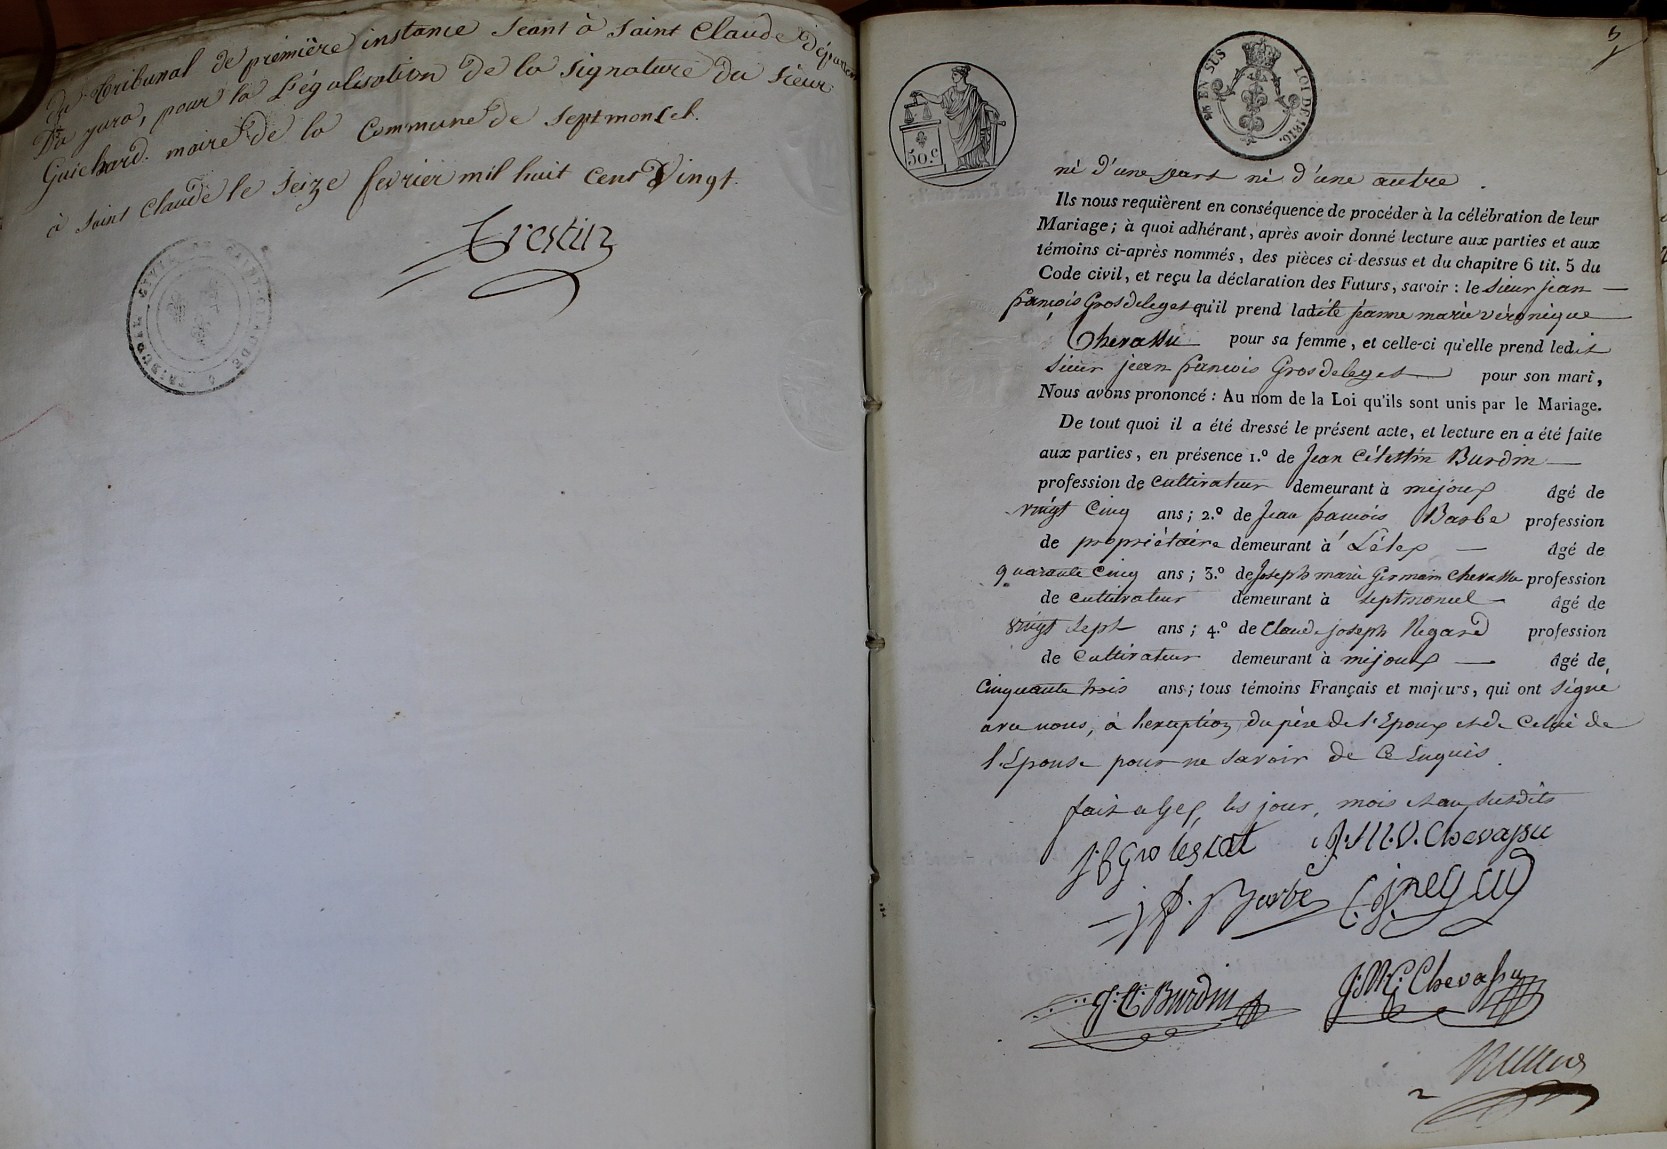 du tribunal de première instance seant à Saint Claude Départem
Du jura, pour la Légalisation de la signature du sieur
Guichard maire de la Commune de Septmoncel.
à Saint Claude le seize fevrier mil huit cent Vingt.
5
EN SUS
LOI DE 1816
50.c
ni d'une part ni d'une autre.
Ils nous requièrent en conséquence de procéder à la célébration de leur
Mariage; à quoi adhérant, après avoir donné lecture aux parties et aux
témoins ci-après nommés, des pièces ci-dessus et du chapitre 6 tit. 5 du
Code civil, et reçu la déclaration des Futurs, savoir : le sieur jean
françois Grosdeleget qu'il prend ladite jeanne marie véronique
Chevassu pour sa femme, et celle-ci qu'elle prend ledit
sieur jean françois Grosdeleget pour son mari,
Nous avons prononcé : Au nom de la Loi qu'ils sont unis par le Mariage.
De tout quoi il a été dressé le présent acte, et lecture en a été faite
aux parties, en présence 1.º de Jean Célestin Burdin
profession de cultivateur demeurant à mijoux âgé de
vingt cinq ans; 2.º de Jean françois Barbe profession
de propriétaire demeurant à Lélex âgé de
quarante cinq ans; 3.º de Joseph marie Germain Chevassu profession
de cultivateur demeurant à septmoncel âgé de
vingt sept ans; 4.º de Claude joseph Regard profession
de cultivateur demeurant à mijoux âgé de
cinquante trois ans; tous témoins Français et majeurs, qui ont signé
avec nous, à l'exception du père de l'Epoux et de Celui de
l'Epouse pour ne savoir de ce enquis.
fait a Gex, les jour, mois et an susdits
J.M.V. Chevassu
j f. Barbe C. J. Regard
J. C. Burdin J.M.G. Chevassu